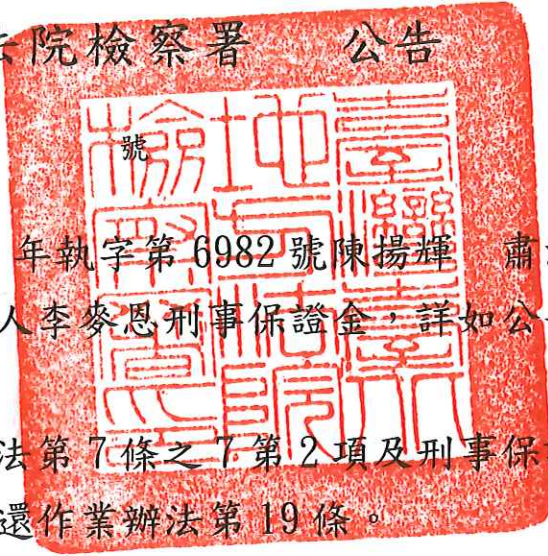 院檢察署 公告
號
年執字第 6982 號陳揚輝 肅
人李麥恩刑事保證金，詳如公
法第 7 條之 7 第 2 項及刑事保
還作業辦法第 19 條。
臺灣臺北
地方法院
檢察署印